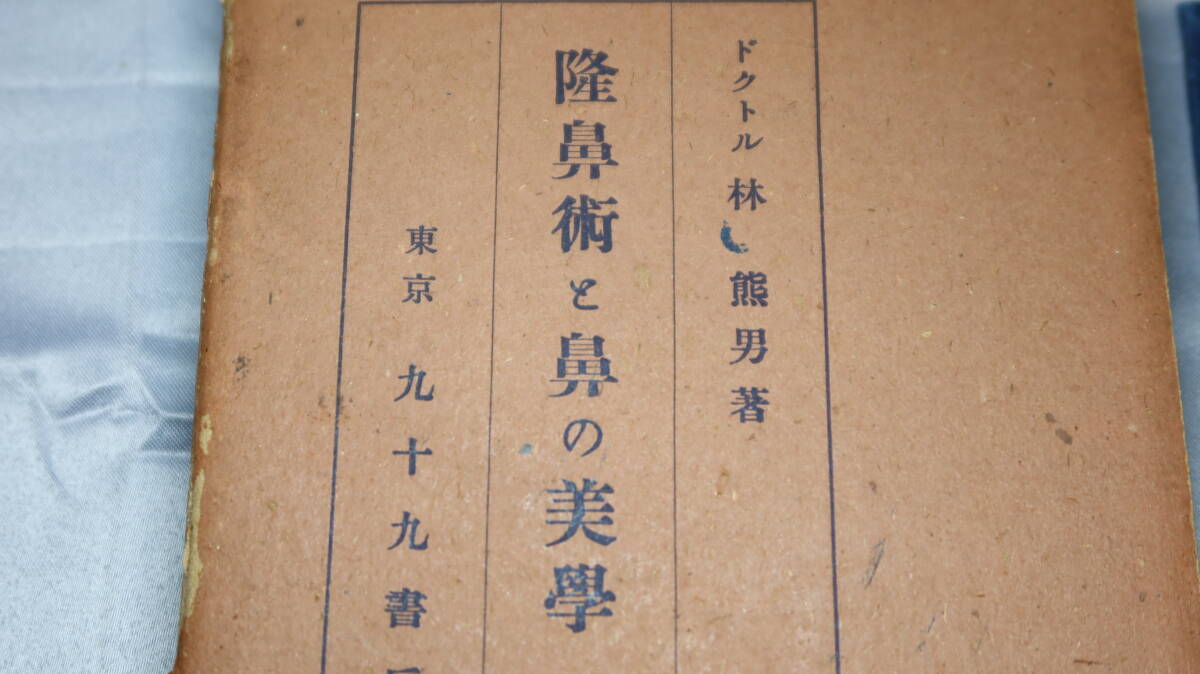 ドクトル 林 熊男著
隆鼻術と鼻の美學
東京 九十九書